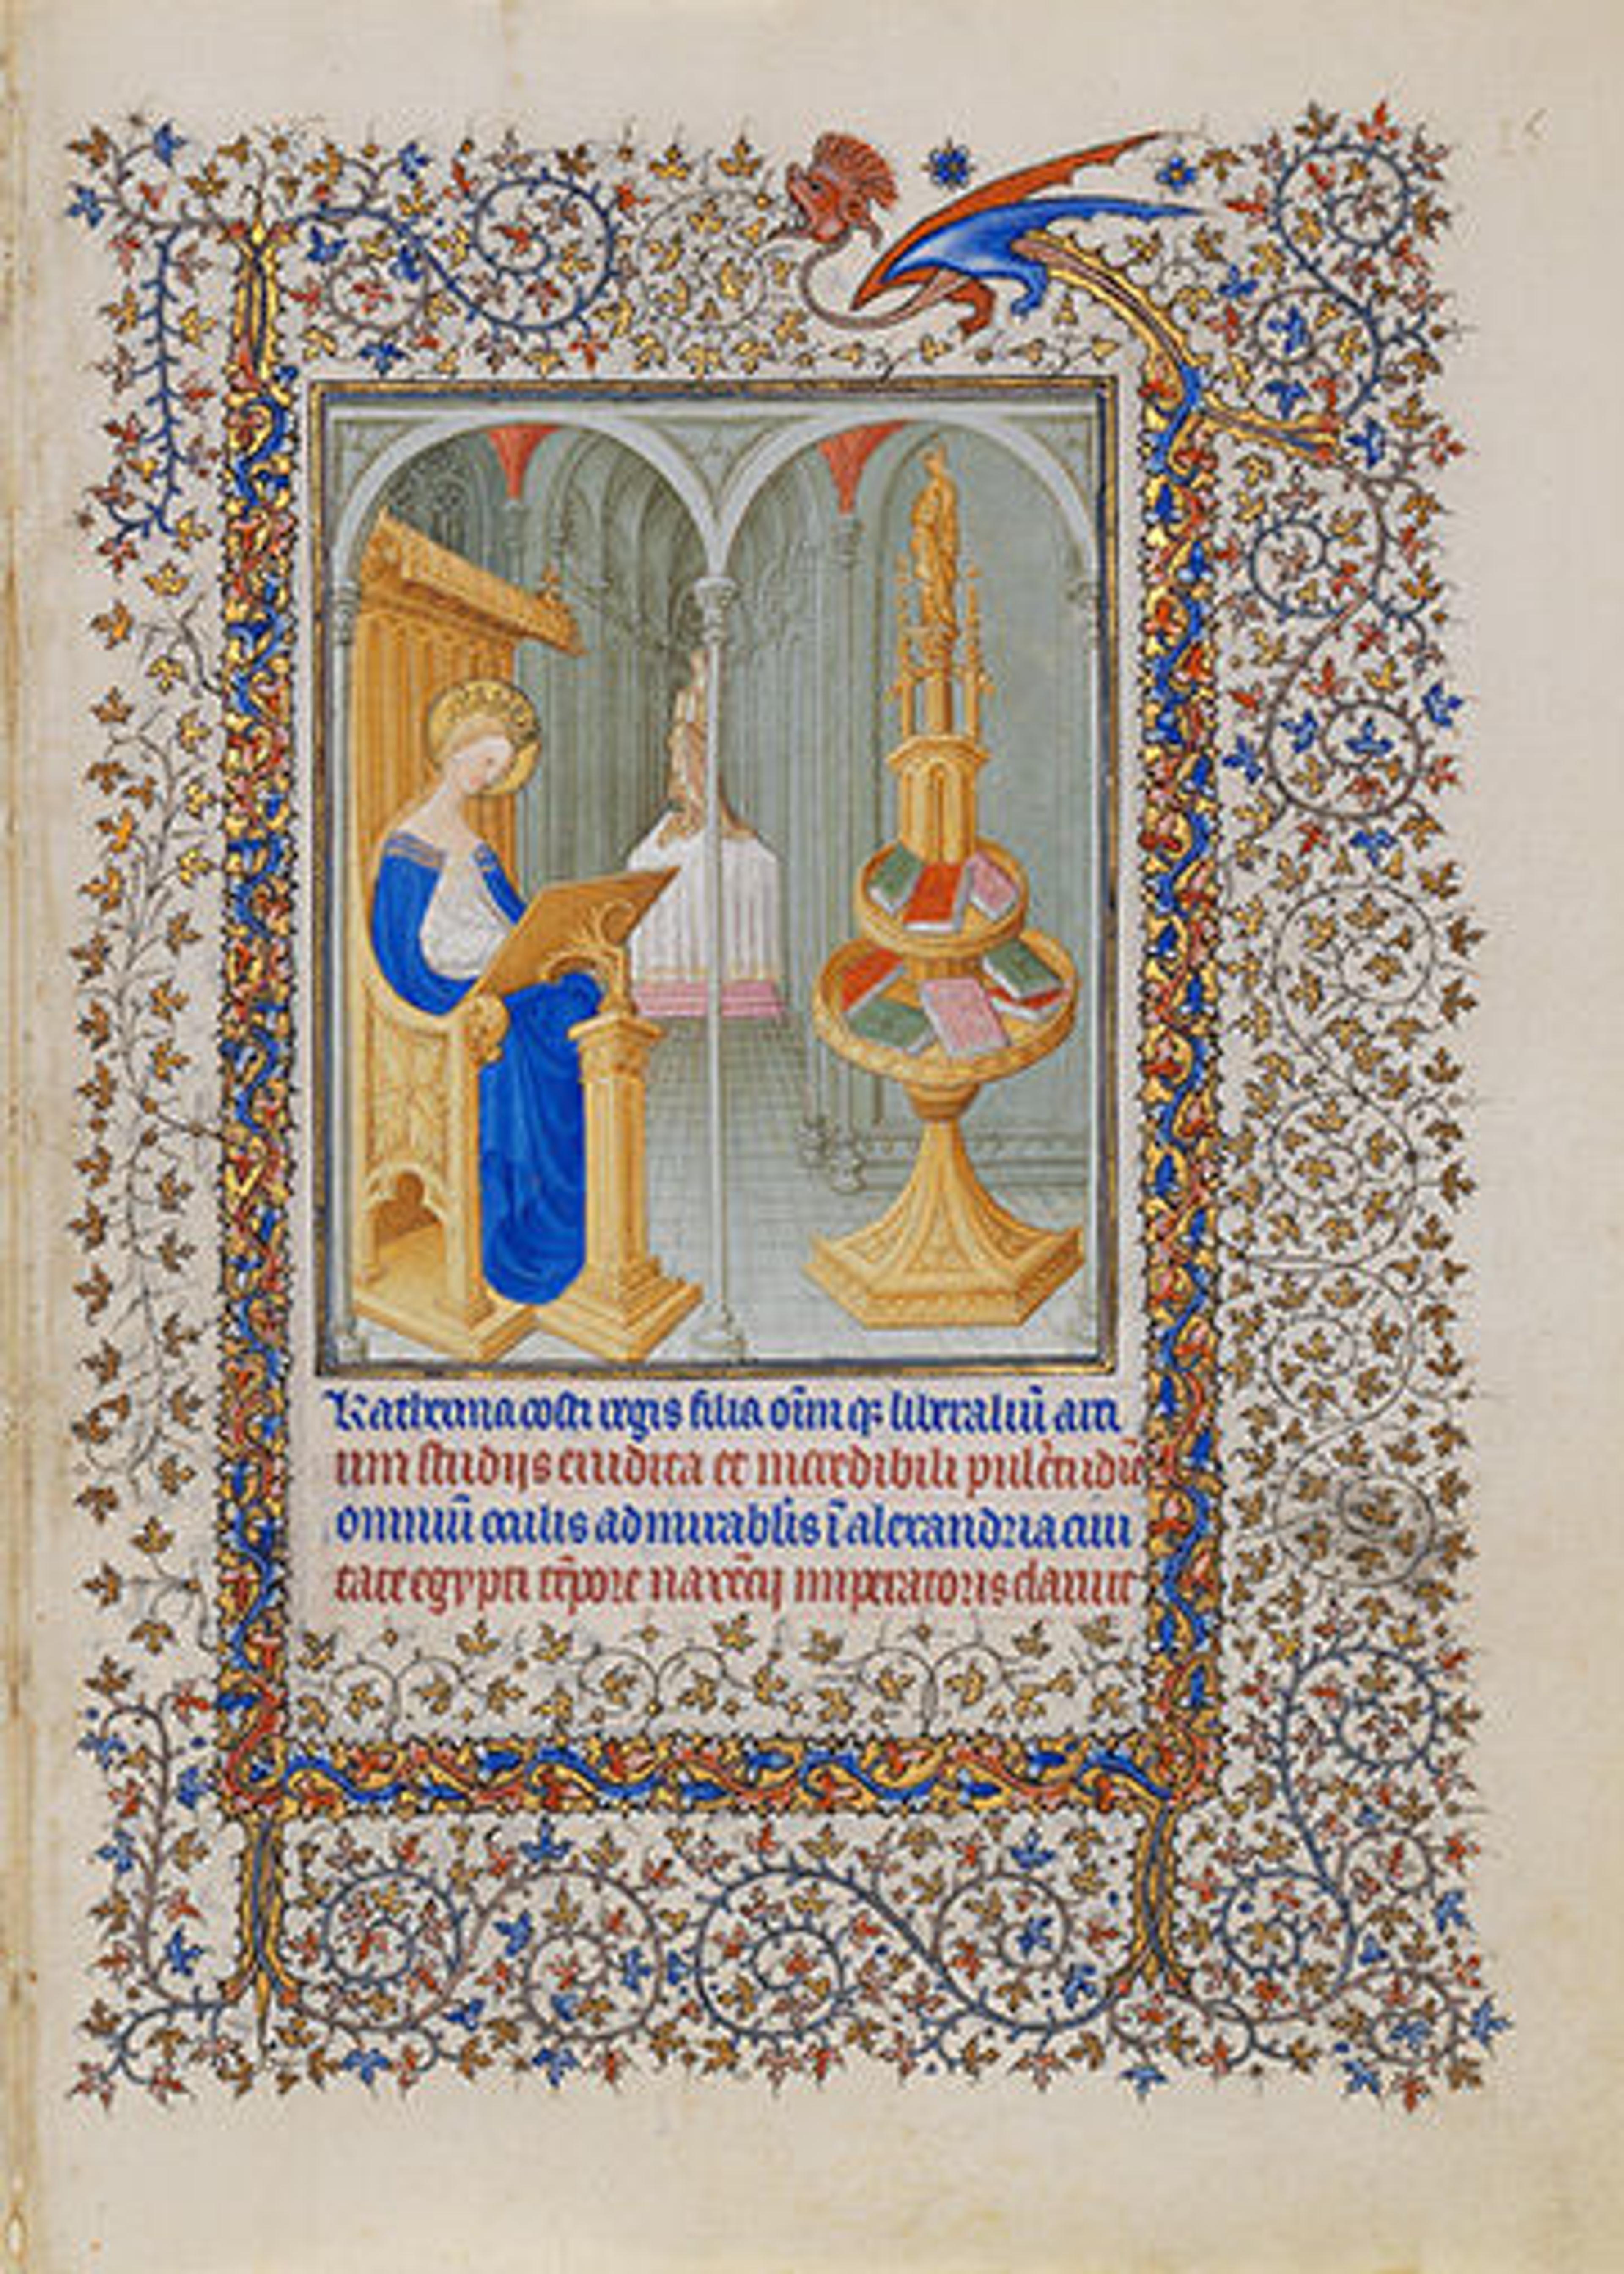 Katherina costi regis filia oīm qꝫ liberaliū arti
um studijs erudita et incredibili pulcritudīe
omniū oculis admirablis ī alexandria ciui
tate egypti tēpore maxēcij imperatoris claruit